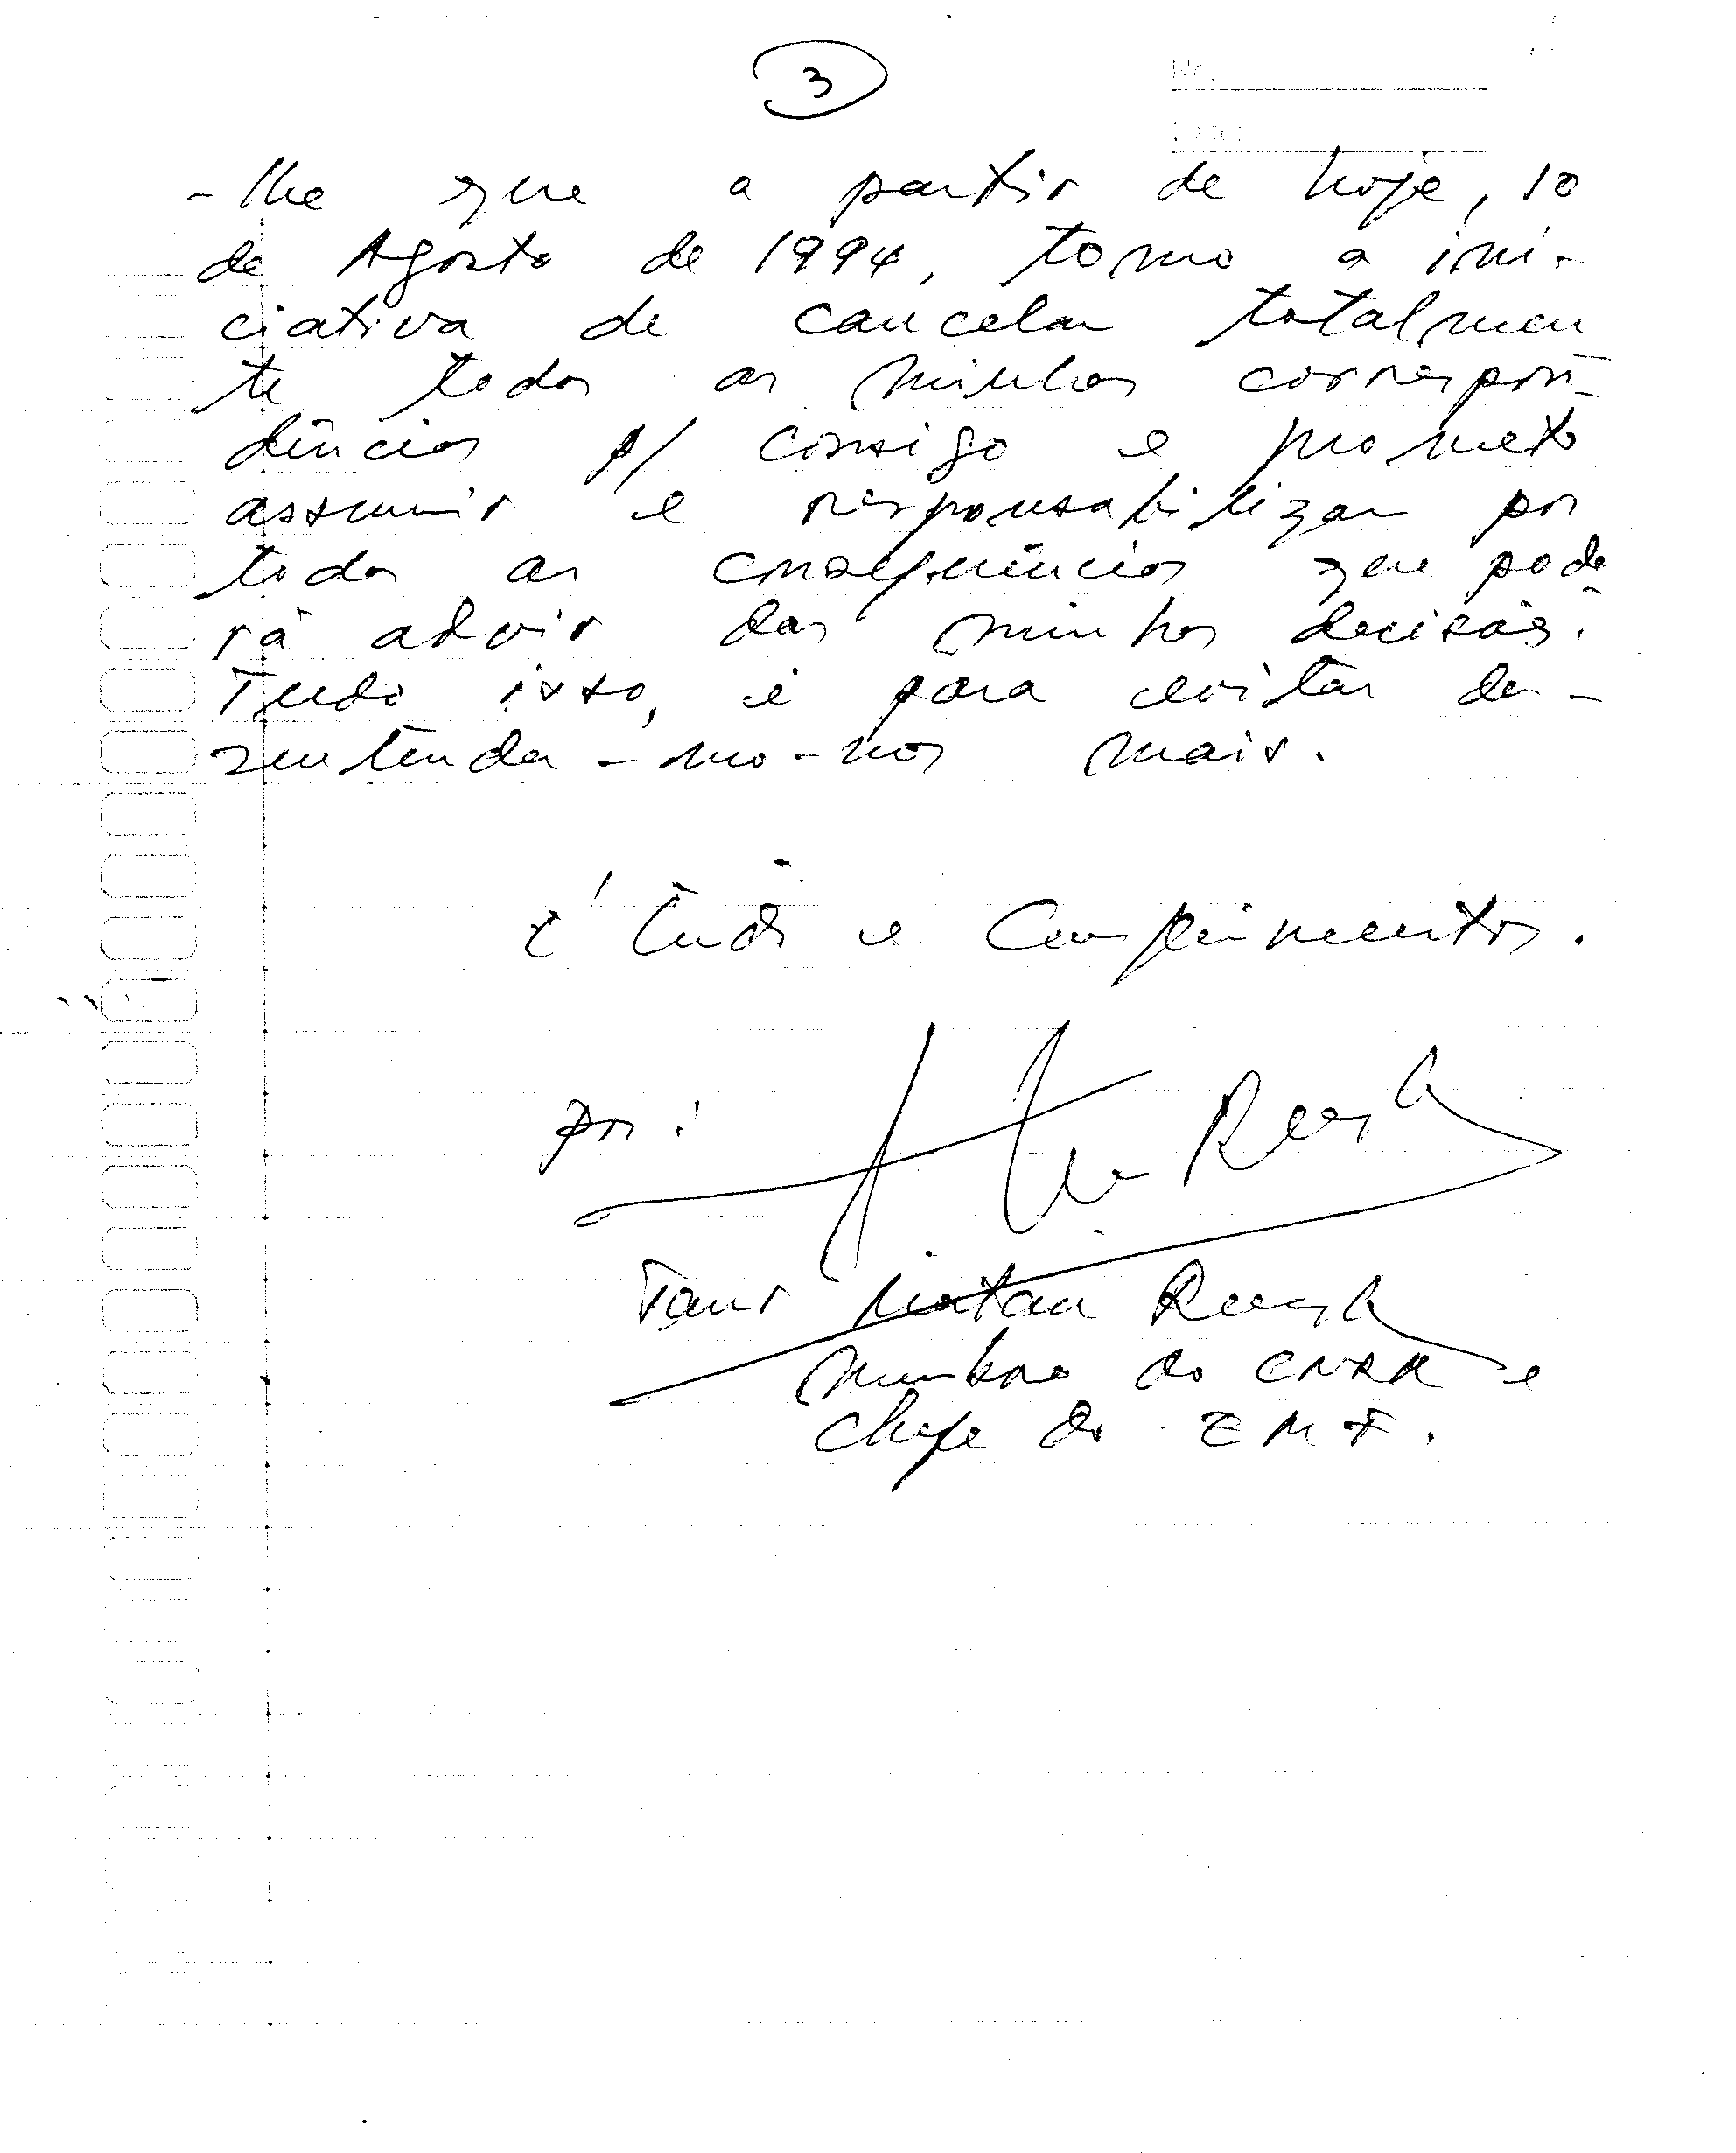 3
No.
- lhe que a partir de hoje, 10
de Agosto de 1994, tomo a ini-
ciativa de cancelar totalmen
te todas as minhas correspon-
dências p/ consigo e prometo
assumir e responsabilizar por
todas as consequências que pode
rá advir das minhas decisões.
Tudo isso, é para evitar de-
sentenda-mo-nos mais.
É tudo e Cumprimentos.
por:
Taur Matan Ruak
Membro do CNRM e
Chefe do EMF.